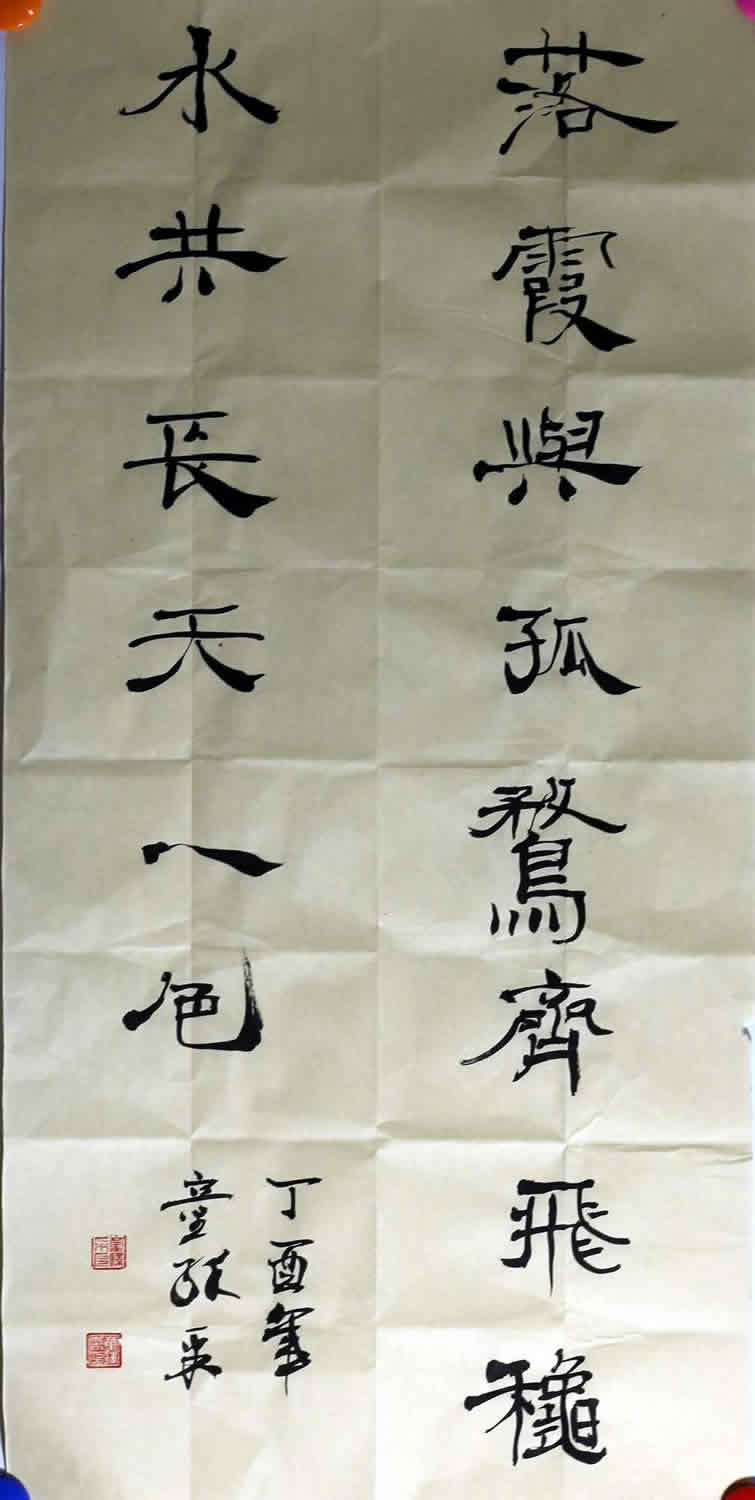 落霞與孤鶩齊飛龝
水共長天一色
丁酉年
童